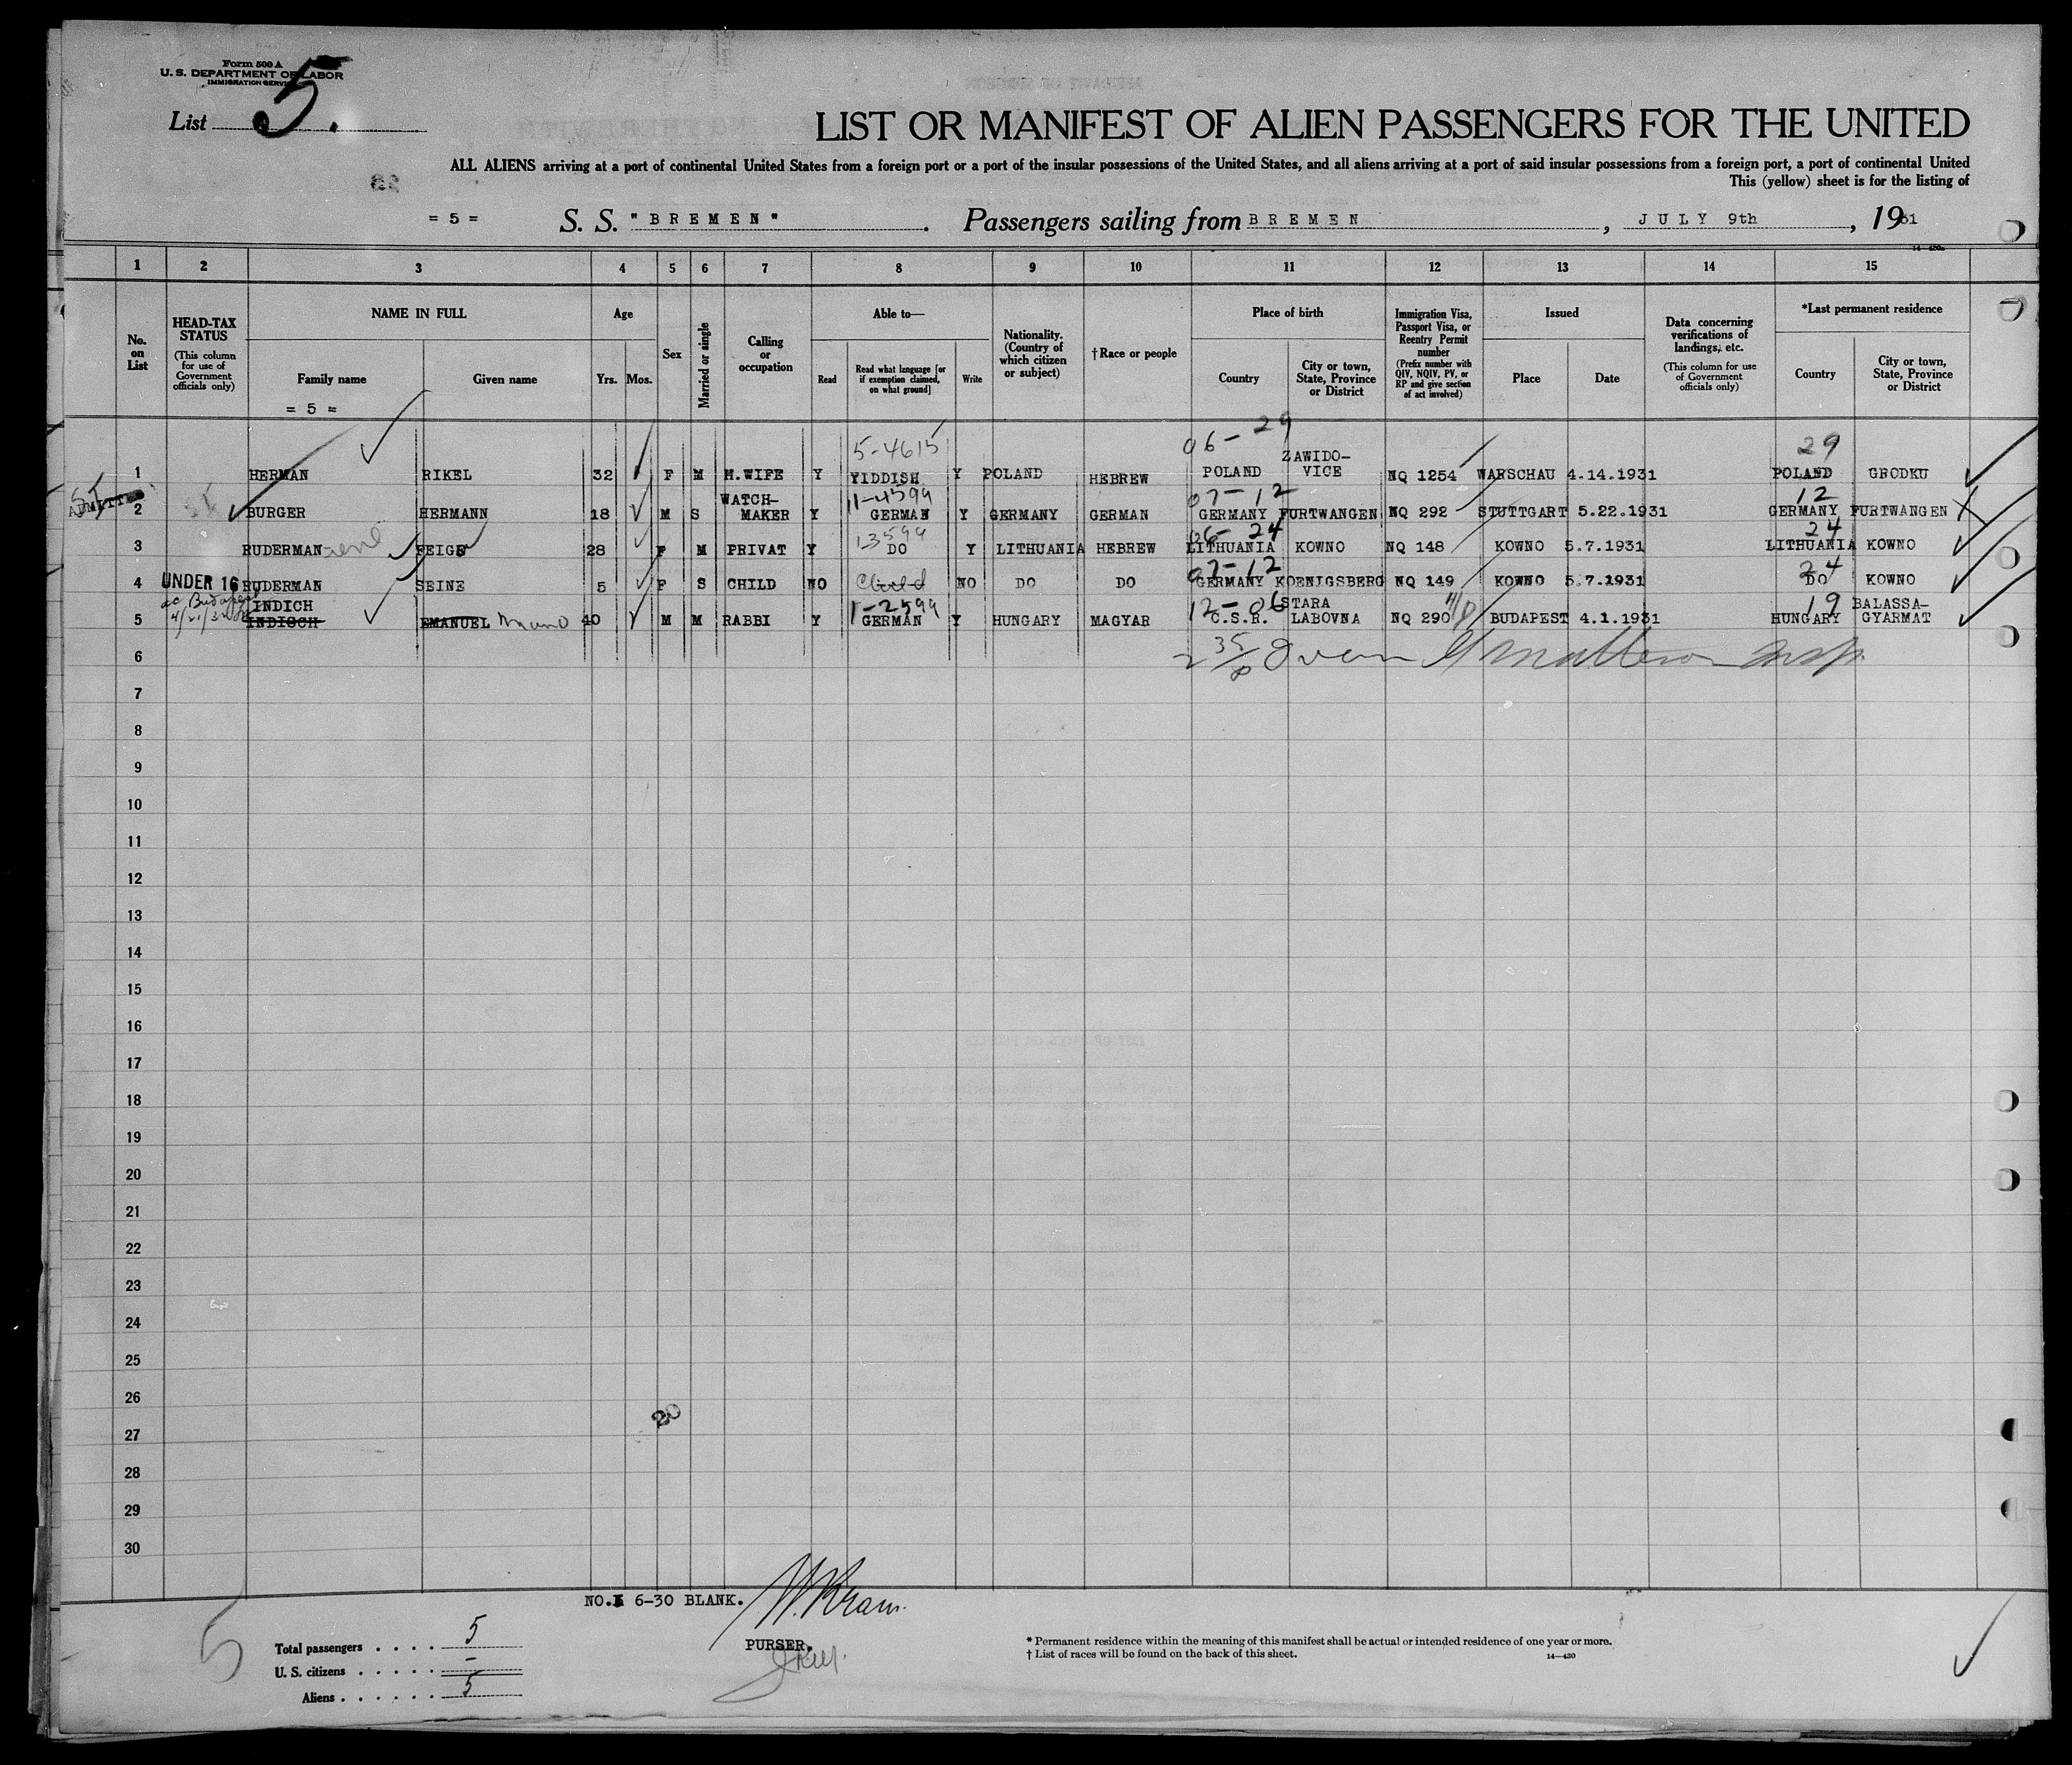 Form 500 A
U. S. DEPARTMENT OF LABOR
IMMIGRATION SERVICE
List 5.
LIST OR MANIFEST OF ALIEN PASSENGERS FOR THE UNITED
ALL ALIENS arriving at a port of continental United States from a foreign port or a port of the insular possessions of the United States, and all aliens arriving at a port of said insular possessions from a foreign port, a port of continental United
This (yellow) sheet is for the listing of
= 5 = S. S. "BREMEN". Passengers sailing from BREMEN, JULY 9th, 1931
1 2 3 4 5 6 7 8 9 10 11 12 13 14 15
No. on List
HEAD-TAX STATUS
(This column for use of Government officials only)
NAME IN FULL
Family name
Given name
= 5 =
Age
Yrs. Mos.
Sex
Married or single
Calling or occupation
Able to—
Read
Read what language [or if exemption claimed, on what ground]
Write
Nationality. (Country of which citizen or subject)
†Race or people
Place of birth
Country
City or town, State, Province or District
Immigration Visa, Passport Visa, or Reentry Permit number
(Prefix number with QIV, NQIV, PV, or RP and give section of act involved)
Issued
Place
Date
Data concerning verifications of landings, etc.
(This column for use of Government officials only)
*Last permanent residence
Country
City or town, State, Province or District
5-4615 06-29 29
1 HERMAN RIKEL 32 F M H.WIFE Y YIDDISH Y POLAND HEBREW POLAND ZAWIDO-VICE NQ 1254 WARSCHAU 4.14.1931 POLAND GRODKU
11-4599 07-12 12
2 BURGER HERMANN 18 M S WATCH-MAKER Y GERMAN Y GERMANY GERMAN GERMANY FURTWANGEN NQ 292 STUTTGART 5.22.1931 GERMANY FURTWANGEN
13599 06-24 24
3 RUDERMAN FEIGE 28 F M PRIVAT Y DO Y LITHUANIA HEBREW LITHUANIA KOWNO NQ 148 KOWNO 5.7.1931 LITHUANIA KOWNO
07-12 24
UNDER 16
4 RUDERMAN SEINE 5 F S CHILD NO Child NO DO DO GERMANY KOENIGSBERG NQ 149 KOWNO 5.7.1931 DO KOWNO
1-2599 12-06 19
INDICH
5 INDISCH EMANUEL Mano 40 M M RABBI Y GERMAN Y HUNGARY MAGYAR C.S.R. STARA LABOVNA NQ 290 BUDAPEST 4.1.1931 HUNGARY BALASSA-GYARMAT
6
7
8
9
10
11
12
13
14
15
16
17
18
19
20
21
22
23
24
25
26
20
27
28
29
30
NO. 6-30 BLANK.
W. Kraus.
PURSER.
5
Total passengers . . . . 5
U. S. citizens . . . . . –
Aliens . . . . . . 5
* Permanent residence within the meaning of this manifest shall be actual or intended residence of one year or more.
† List of races will be found on the back of this sheet.
14—430